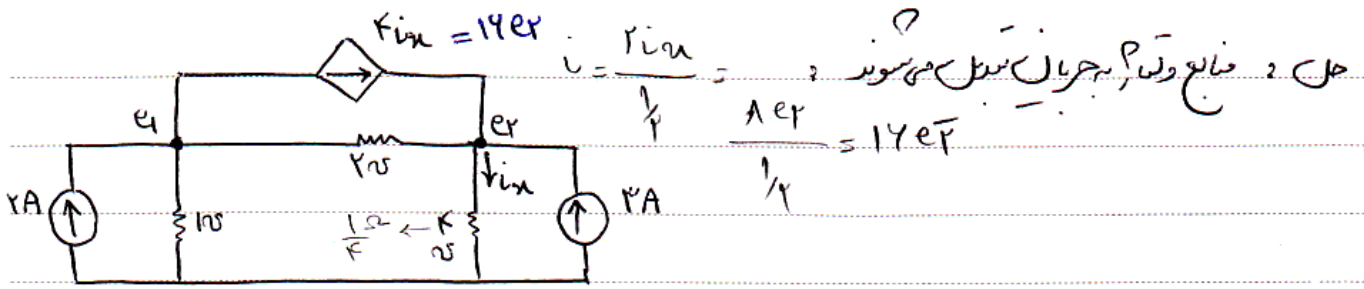 حل : منابع ولتاژ به جریان تبدیل می شوند :
i = ۲ix / ۱/۲ = ۸e۲ / ۱/۲ = ۱۶e۲
۴ix = ۱۶e۲
e۱
e۲
۲℧
↓ix
۲A
۱℧
۱/۴ Ω ← ۴℧
۳A